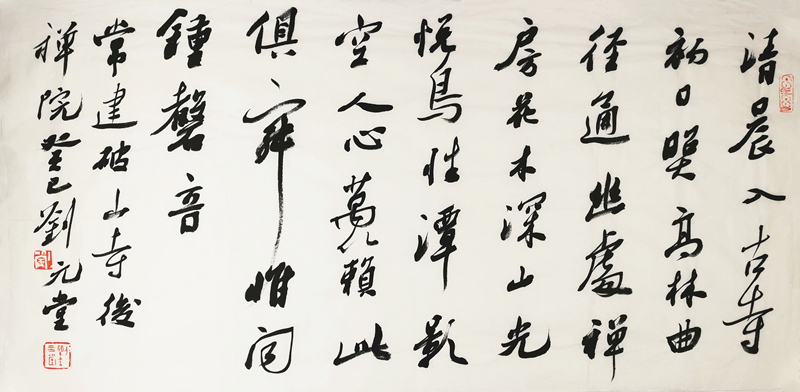 清晨入古寺
初日照高林曲
径通幽處禅
房花木深山光
悦鳥性潭影
空人心萬籟此
俱寂惟闻
鐘磬音
常建破山寺後
禅院癸巳劉元堂